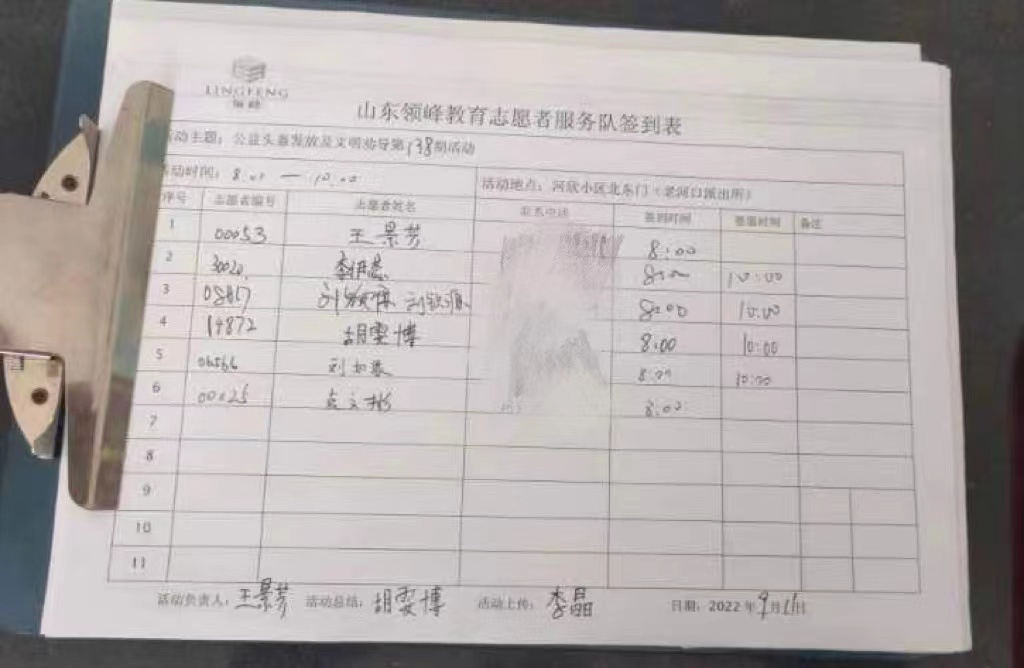 LINGFENG
领峰
山东领峰教育志愿者服务队签到表
活动主题：公益头盔发放及文明劝导第138期活动
活动时间：8:00 — 10:00 活动地点：河欣小区北东门（老河口派出所）
序号 志愿者编号 志愿者姓名 联系电话 签到时间 签退时间 备注
1 00053 王景芳 8:00
2 8:00 10:00
3 8:00 10:00
4 14872 胡雯博 8:00 10:00
5 8:00 10:00
6 00025 8:00
7
8
9
10
11
活动负责人：王景芳 活动总结：胡雯博 活动上传：李晶 日期：2022年9月 日